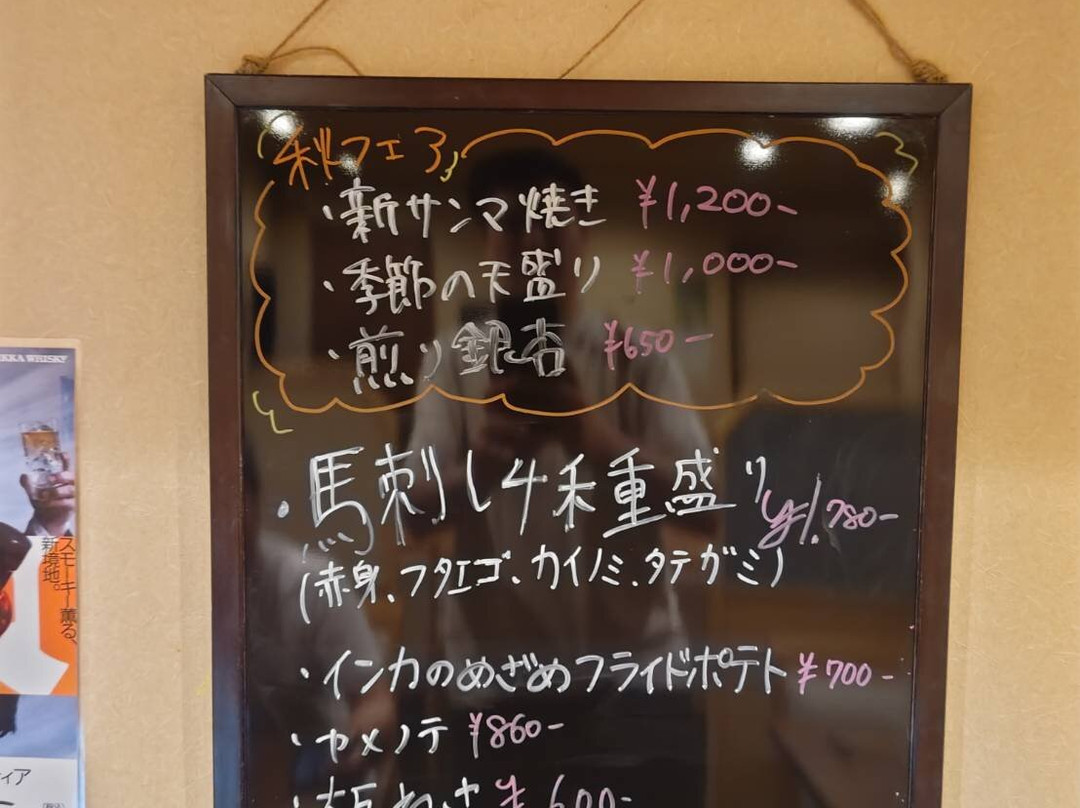 秋フェア
・新サンマ焼き ¥1,200-
・季節の天盛り ¥1,000-
・煎り銀杏 ¥650-
・馬刺し4種盛り ¥1,780-
(赤身、フタエゴ、カイノミ、タテガミ)
・インカのめざめフライドポテト ¥700-
・カメノテ ¥860-
¥600-
KKA WHISKY
スモーキー薫る、
新境地。
ィア